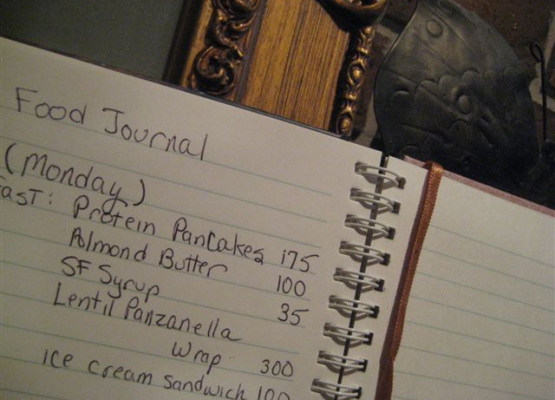 Food Journal
(Monday)
fast: Protein Pancakes 175
Almond Butter 100
SF Syrup 35
Lentil Panzanella
Wrap 300
ice cream sandwich 100